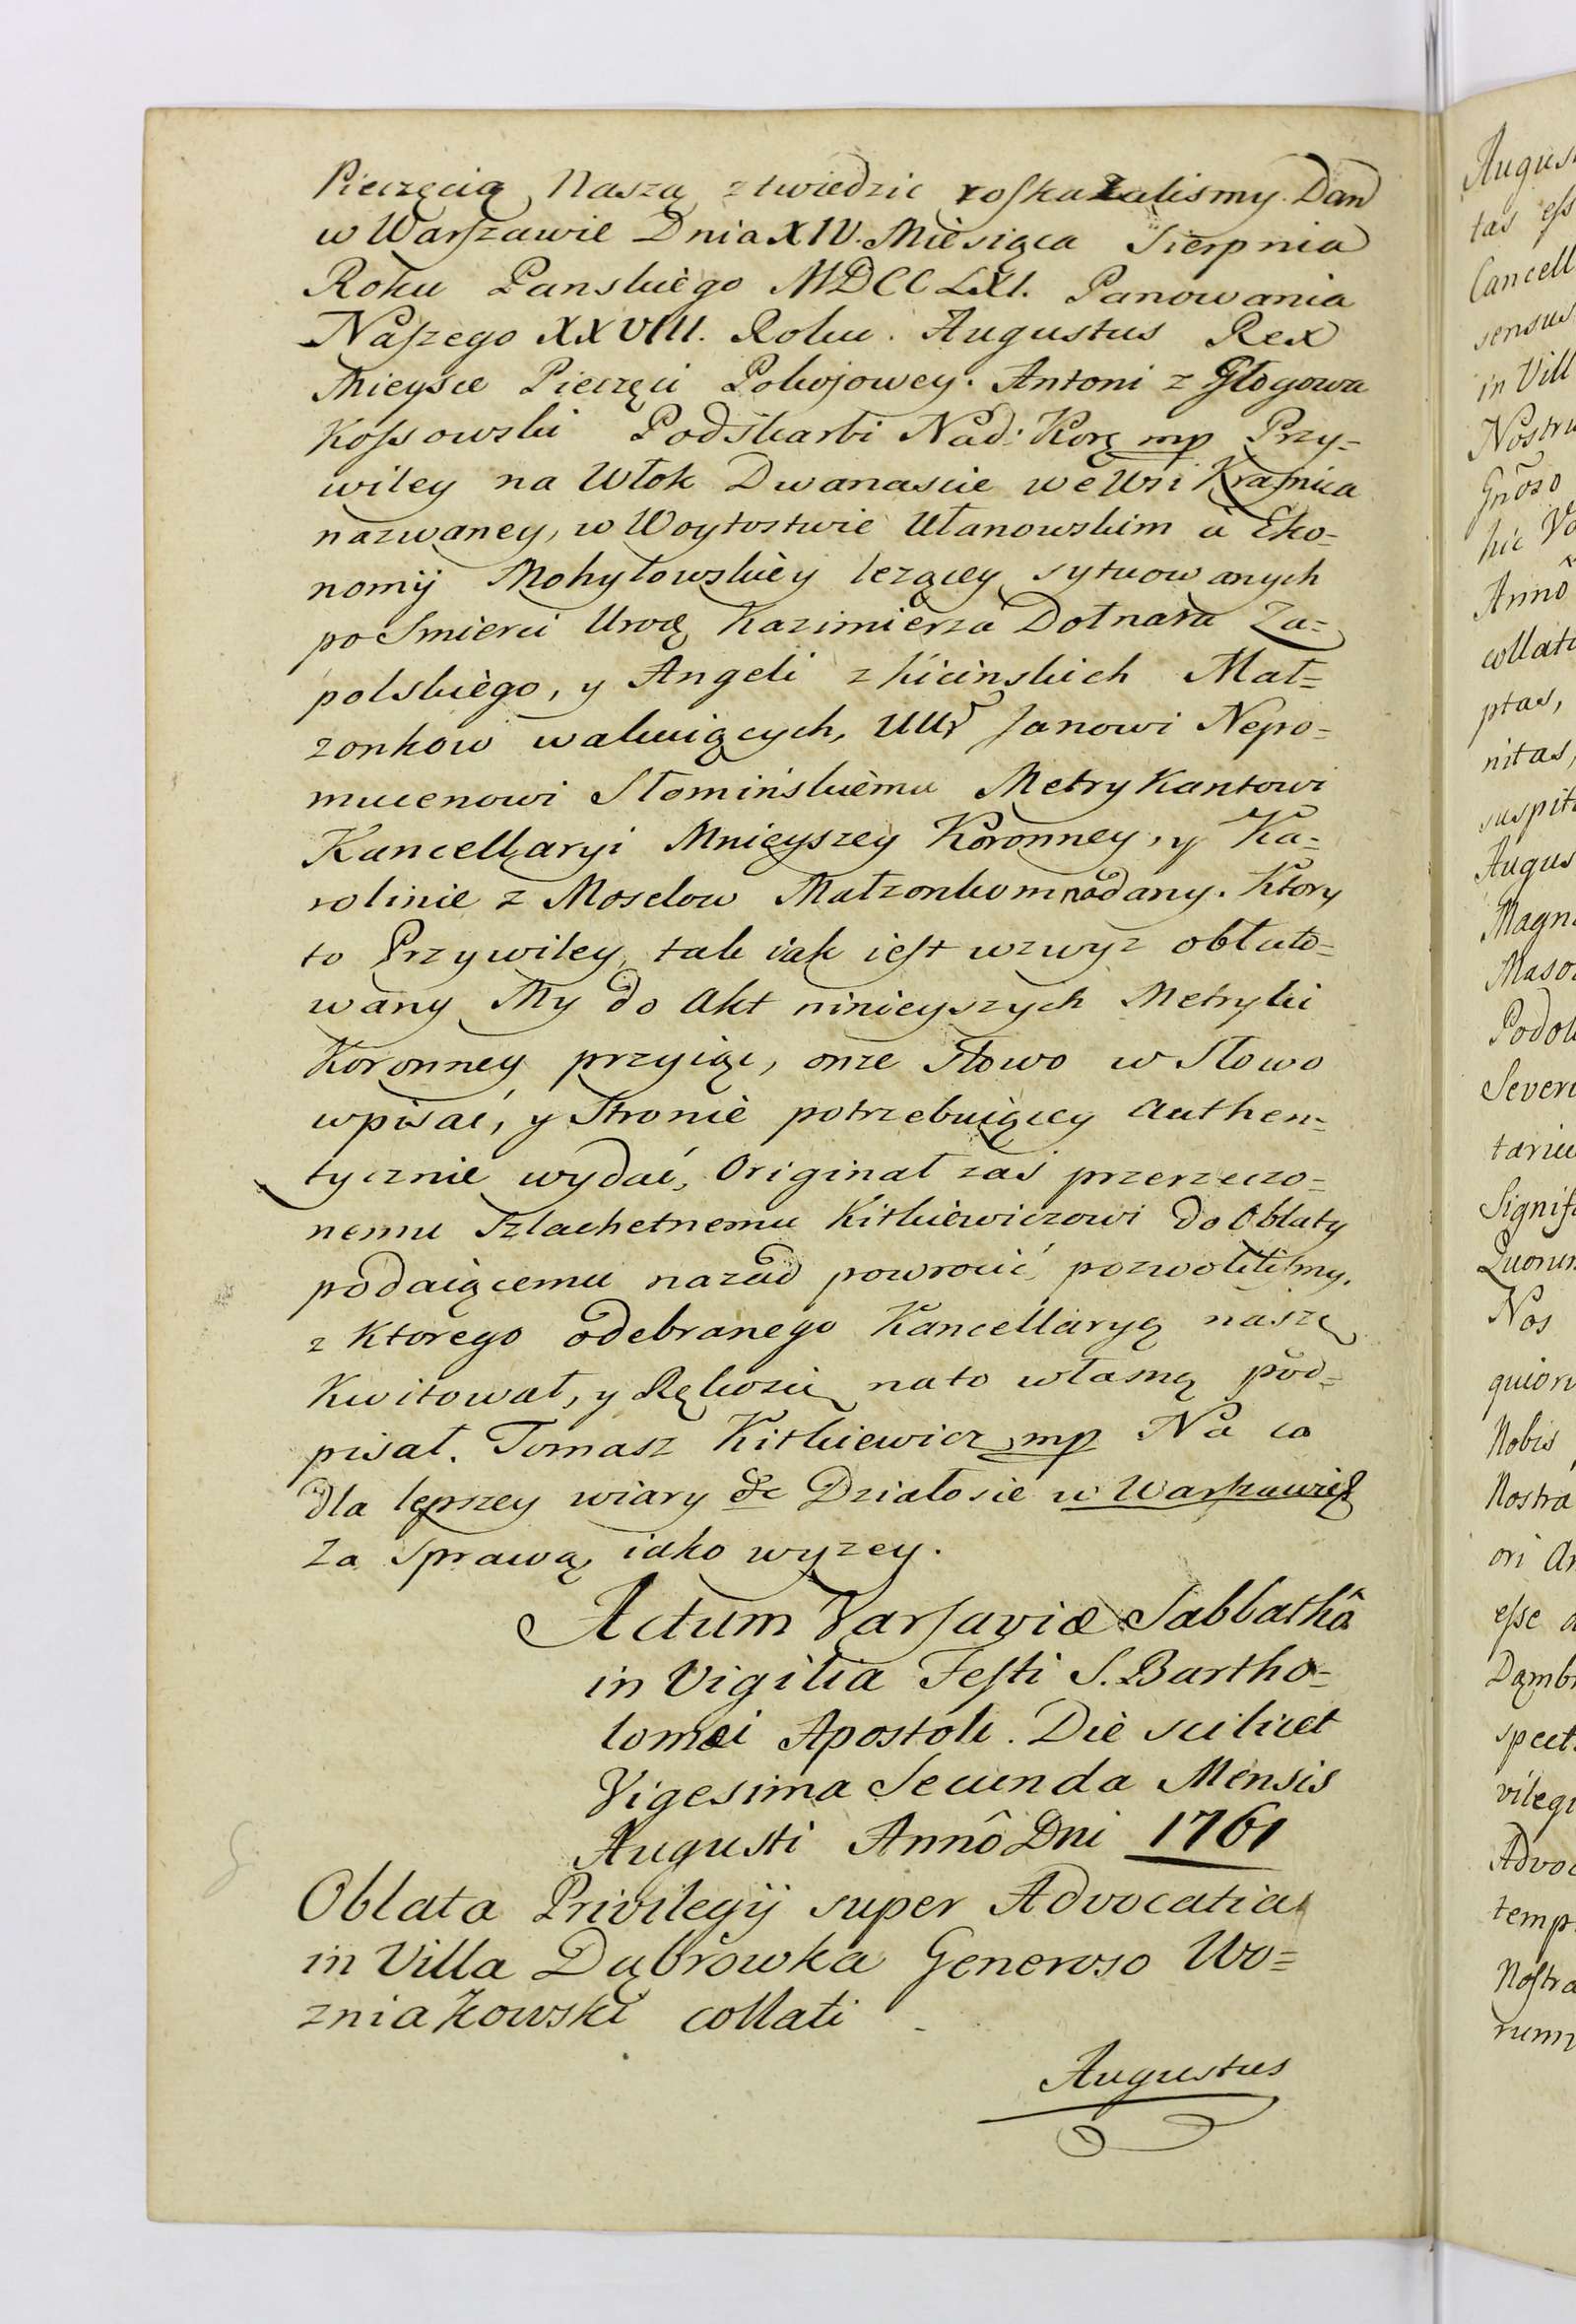 Pieczęcią Naszą ztwiedzic roskazalismy. Dan
w Warszawie Dnia XIV. Miesiąca Sierpnia
Roku Panskiego MDCCLXI. Panowania
Naszego XXVIII. Roku. Augustus Rex
Mieysce Pieczęci Pokojowey. Antoni z Głogowa
Kossowski Podskarbi Nad: Korą mp Przy=
wiley na Włok Dwanascie we Wsi Krasnica
nazwaney, w Woytostwie Ułanowskim a Eko=
nomij Mohyłowskiey lezącey sytuowanych
po Smierci Urod Kazimierza Dołnara Za=
polskiego, y Angeli z Kicinskich Mał=
zonkow wakuiących, UUr Janowi Nepo=
mucenowi Słomińskiemu Metrykantowi
Kancellaryi Mnieyszey Koronney, y Ka=
rolinie z Moselow Małzonkom nadany. Ktory
to Przywiley tak iak iest wzwyz obłato=
wany My do Akt ninieyszych Metryki
Koronney przyiąc, onze Słowo w Słowo
wpisać, y Stronie potrzebuiącey Authen=
tycznie wydać, Originał zaś przerzeczo=
nemu Szlachetnemu Kitkiewiczowi do Oblaty
podaiącemu nazad powrocić pozwolilismy.
z Ktorego odebranego Kancellaryą naszę
Kwitował, y Ręką się na to własną pod=
pisał. Tomasz Kitkiewicz mp Na co
dla lepszey wiary &c Działo sie w Warszawie
Za Sprawą iako wyzey.
Actum Varsaviæ Sabbathô
in Vigilia Festi S. Bartho=
lomæi Apostoli. Die scilicet
Vigesima Secunda Mensis
Augusti Annô Dni 1761
Oblata Privilegij super Advocatia
in Villa Dąbrowka Generoso Wo=
zniakowski collati
Augustus
Augus
tas ess
Cancell
sensus
in Vill
Nostru
Gnoso
hic Vo
Anno
collati
ptas,
nitas,
suspit
Augus
Magn
Maso
Podol
Severi
tariu
Signif
Quorum
Nos
quior
Nobis
Nostra
ori An
esse a
Dąmb
spect
vilegi
Advoc
temp
Nostra
rum